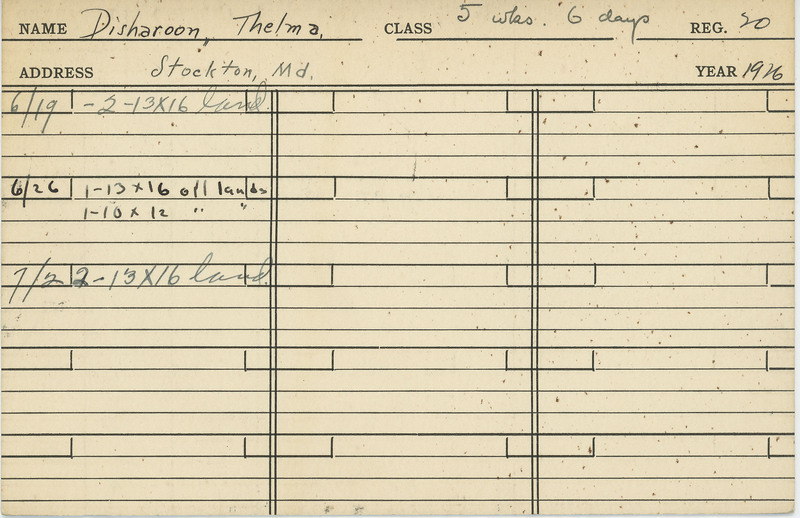 NAME Disharoon, Thelma, CLASS 5 wks. 6 days REG. 20
ADDRESS Stockton, Md. YEAR 1926
6/19 - 2 - 13X16 land.
6/26 1-13 x 16 oil lands
1-10 x 12 " "
7/2 2 - 13X16 land.